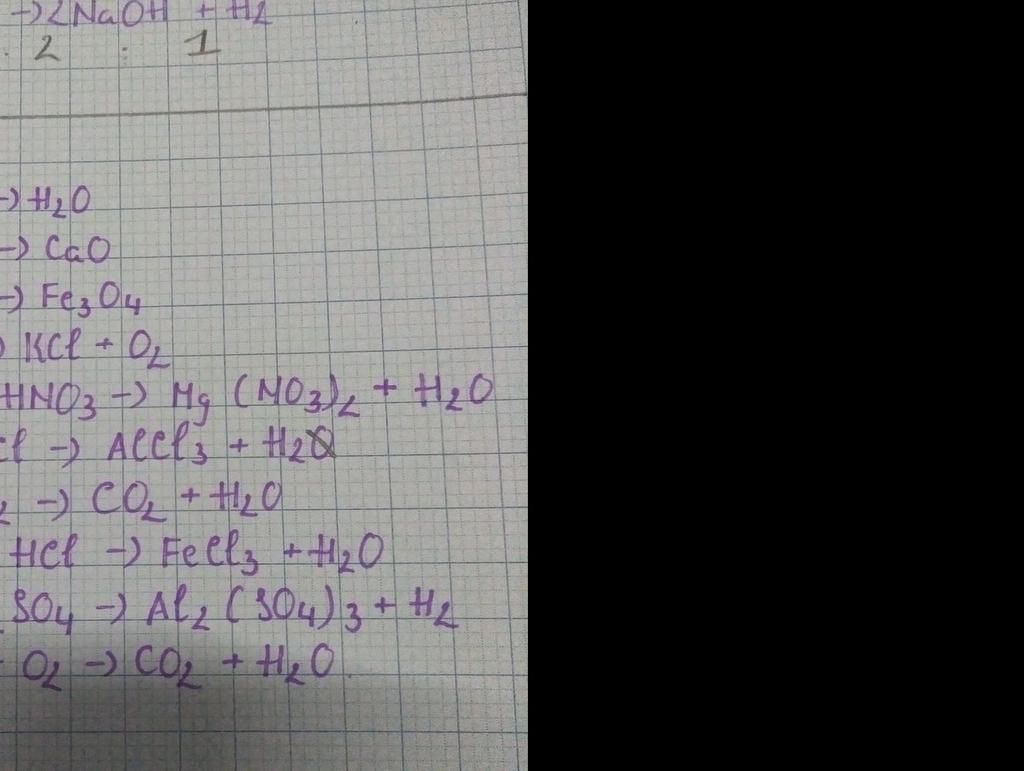 →2NaOH + H2
. 2 : 1
→ H2O
→ CaO
→ Fe3O4
KCl + O2
HNO3 → Mg (NO3)2 + H2O
Cl → AlCl3 + H2
2 → CO2 + H2O
HCl → FeCl3 + H2O
SO4 → Al2 (SO4)3 + H2
O2 → CO2 + H2O.